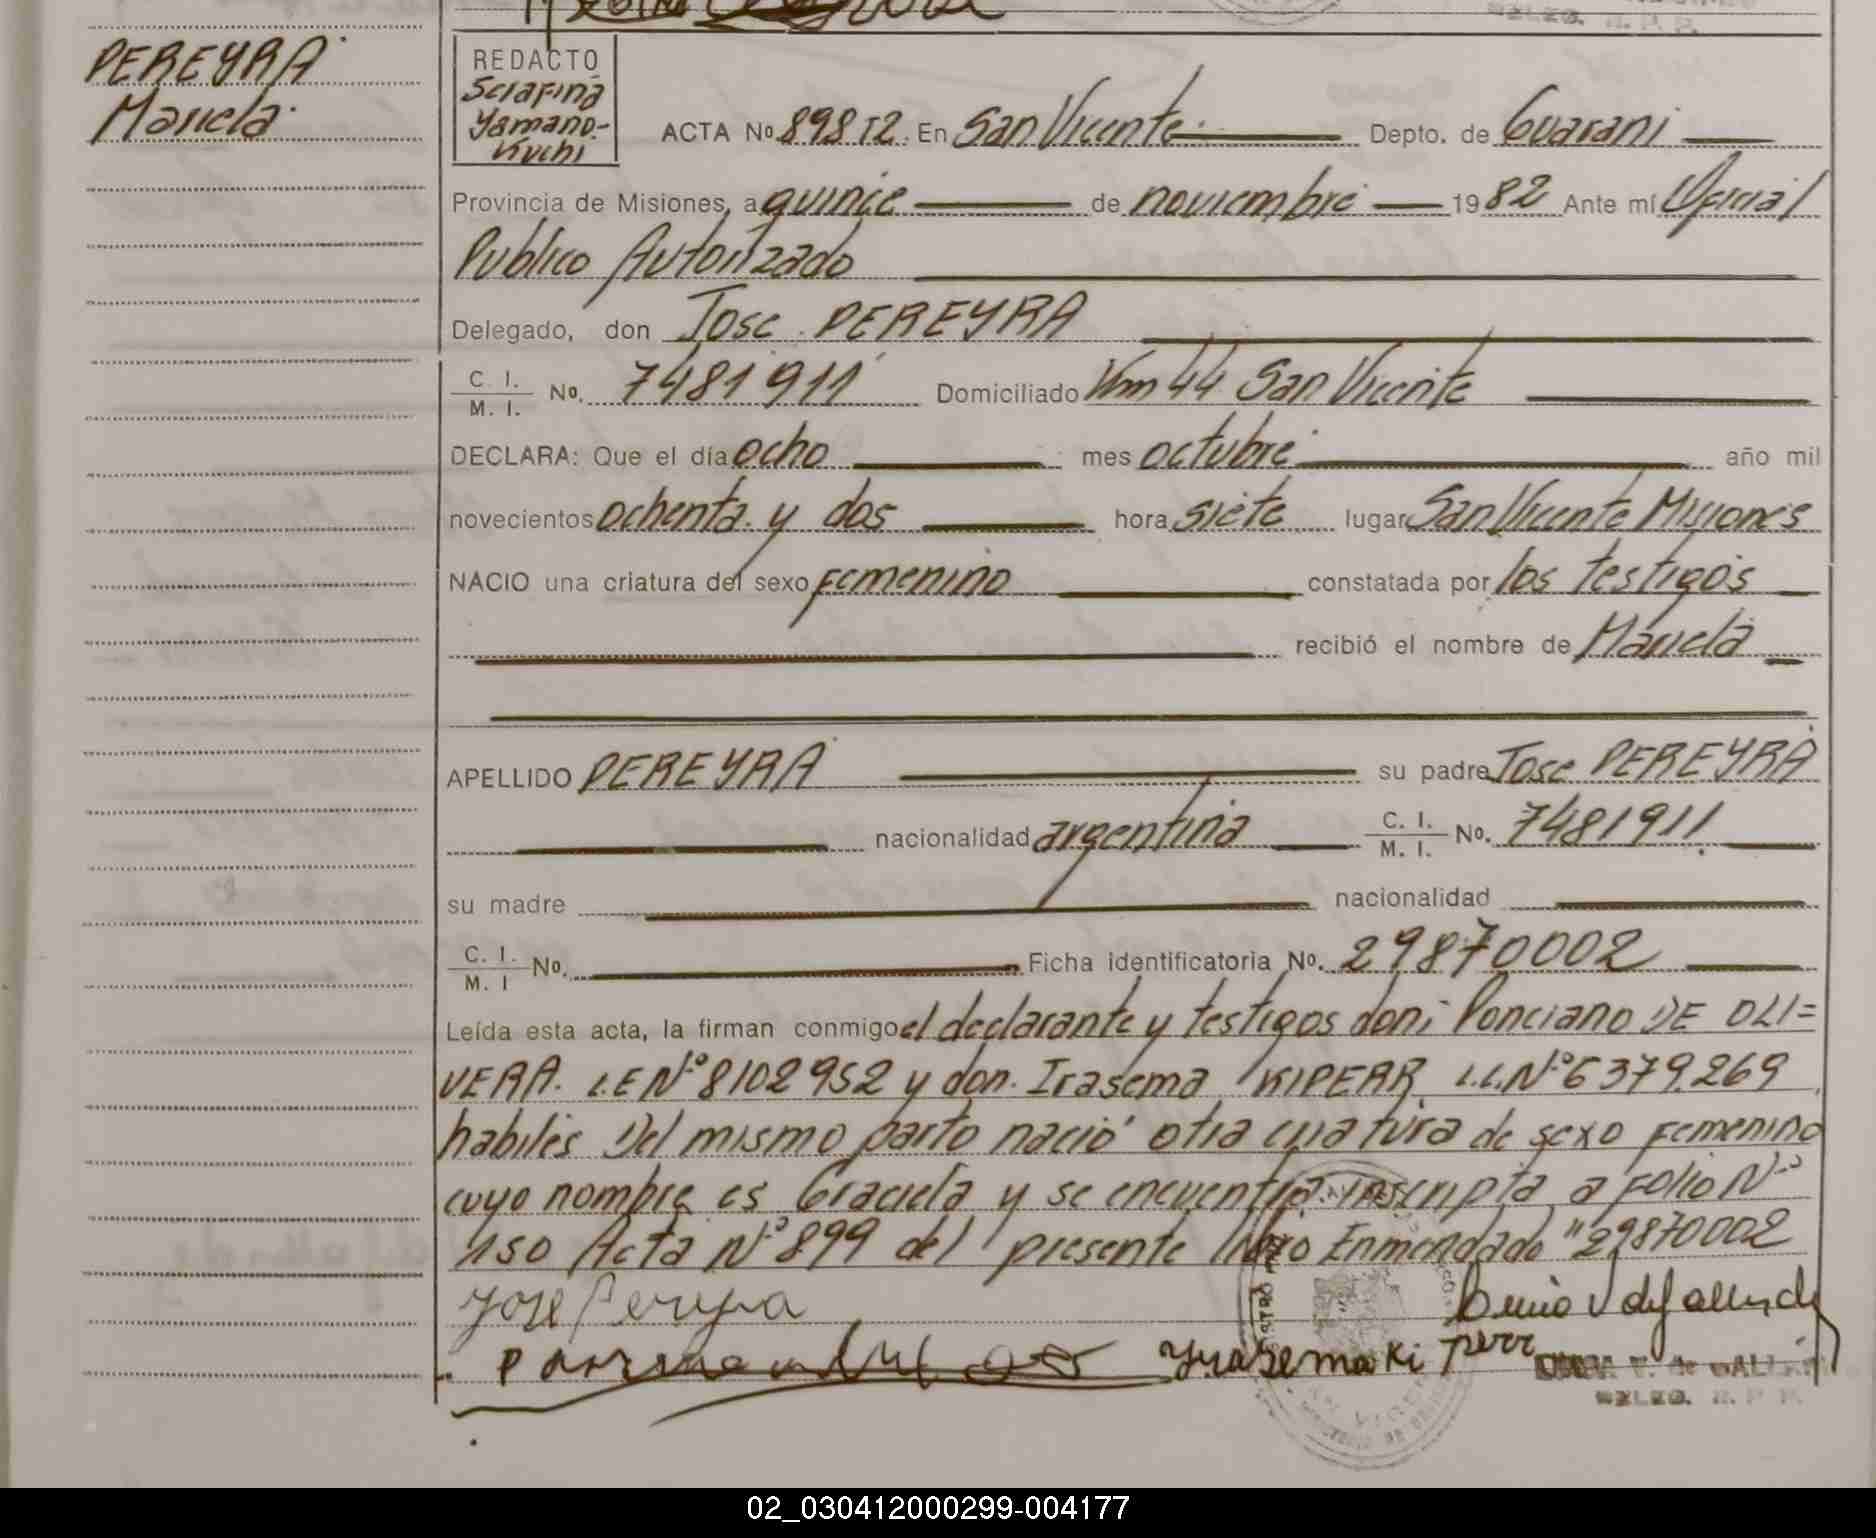 PEREYRA
Mariela
REDACTO
Serafina
Yamano-
Kuchi
ACTA No 898 T2. En San Vicente Depto. de Guarani
Provincia de Misiones, a quince de noviembre 1982 Ante mí Oficial
Publico Autorizado
Delegado, don Jose PEREYRA
C. I.
M. I. No. 7481911 Domiciliado Km 44 San Vicente
DECLARA: Que el día ocho mes octubre año mil
novecientos ochenta y dos hora siete lugar San Vicente Misiones
NACIO una criatura del sexo femenino constatada por los testigos
recibió el nombre de Mariela
APELLIDO PEREYRA su padre Jose PEREYRA
nacionalidad argentina C. I.
M. I. No. 7481911
su madre nacionalidad
C. I.
M. I No. Ficha identificatoria No. 29870002
Leída esta acta, la firman conmigo el declarante y testigos don: Ponciano DE OLI=
VERA. L.E Nº 8102952 y don. Irasema KIPERR L.C. Nº 6379.269
habiles Del mismo parto nació otra criatura de sexo femenino
cuyo nombre es Graciela y se encuentra inscripta a folio Nº
150 Acta Nº 899 del presente libro Enmendado "29870002
Jose Pereyra
Yrasema Kiperr
02_030412000299-004177